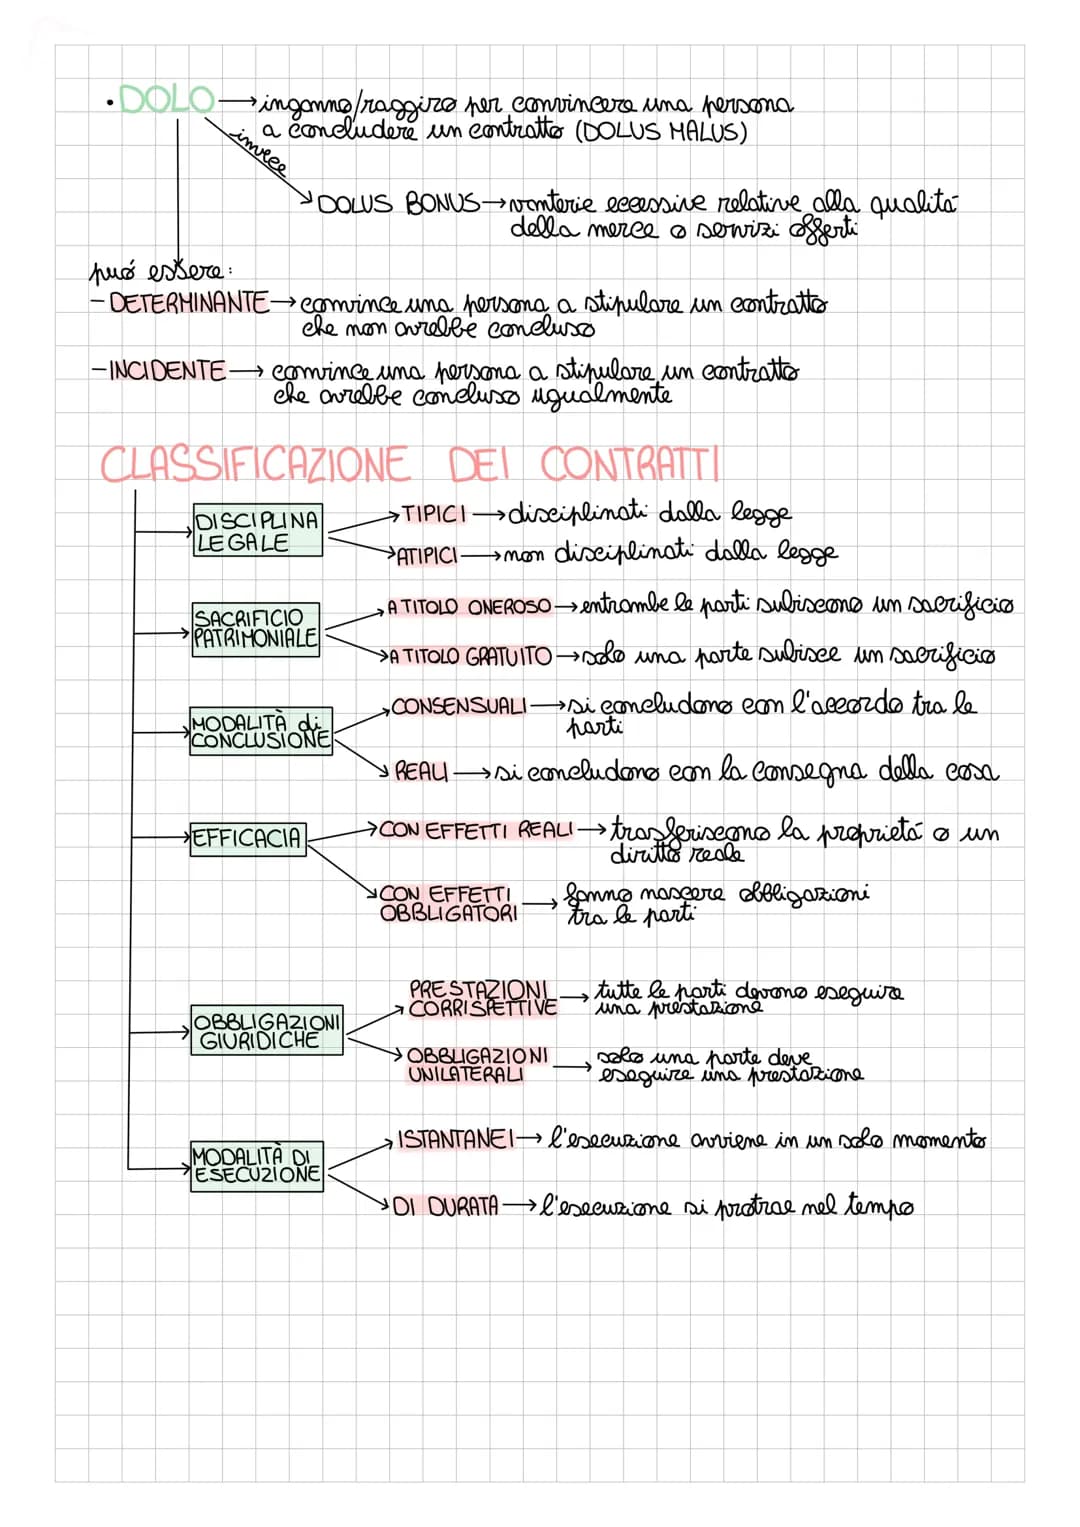 • DOLO → inganno/raggiro per convincere una persona
a concludere un contratto (DOLUS MALUS)
invece
DOLUS BONUS → vanterie eccessive relative alla qualitá
della merce o servizi offerti
puó essere:
- DETERMINANTE → convince una persona a stipulare un contratto
che non avrebbe concluso
- INCIDENTE → convince una persona a stipulare un contratto
che avrebbe concluso ugualmente
CLASSIFICAZIONE DEI CONTRATTI
DISCIPLINA
LEGALE
TIPICI → disciplinati dalla legge
ATIPICI → non disciplinati dalla legge
SACRIFICIO
PATRIMONIALE
A TITOLO ONEROSO → entrambe le parti subiscono un sacrificio
A TITOLO GRATUITO → solo una parte subisce un sacrificio
MODALITÀ di
CONCLUSIONE
CONSENSUALI → si concludono con l'accordo tra le
parti
REALI → si concludono con la consegna della cosa
EFFICACIA
CON EFFETTI REALI → trasferiscono la proprietá o un
diritto reale
CON EFFETTI
OBBLIGATORI → fanno nascere obbligazioni
tra le parti
OBBLIGAZIONI
GIURIDICHE
PRESTAZIONI
CORRISPETTIVE → tutte le parti devono eseguire
una prestazione
OBBLIGAZIONI
UNILATERALI → solo una parte deve
eseguire una prestazione
MODALITÀ DI
ESECUZIONE
ISTANTANEI → l'esecuzione avviene in un solo momento
DI DURATA → l'esecuzione si protrae nel tempo